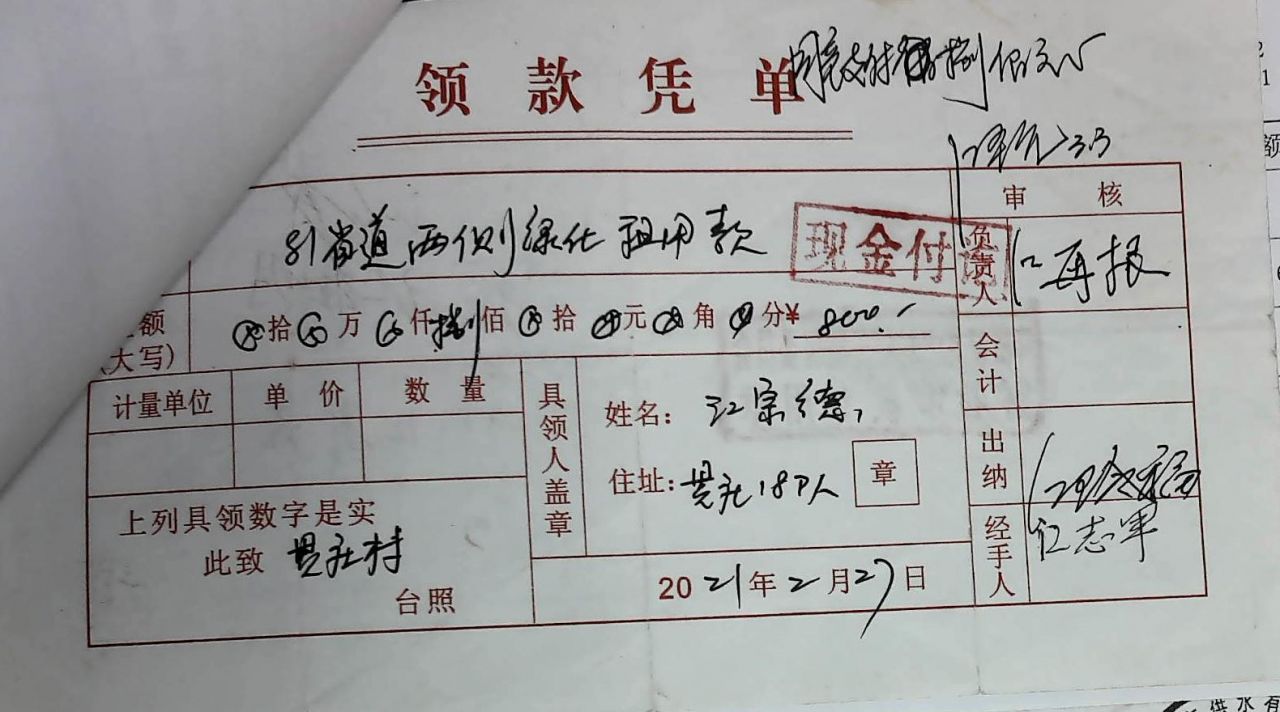 领款凭单
同意支付捌佰元
审核
81省道两侧绿化租用款
现金付讫
负责人 江再根
额
(大写)
拾 万 仟 捌 佰 拾 元 角 分 ¥ 800.-
会计
计量单位 单价 数量
具领人盖章
姓名: 江宗德
住址: 18户人
章
出纳
上列具领数字是实
此致
台照
经手人 江志军
2021年2月27日
额
供水有